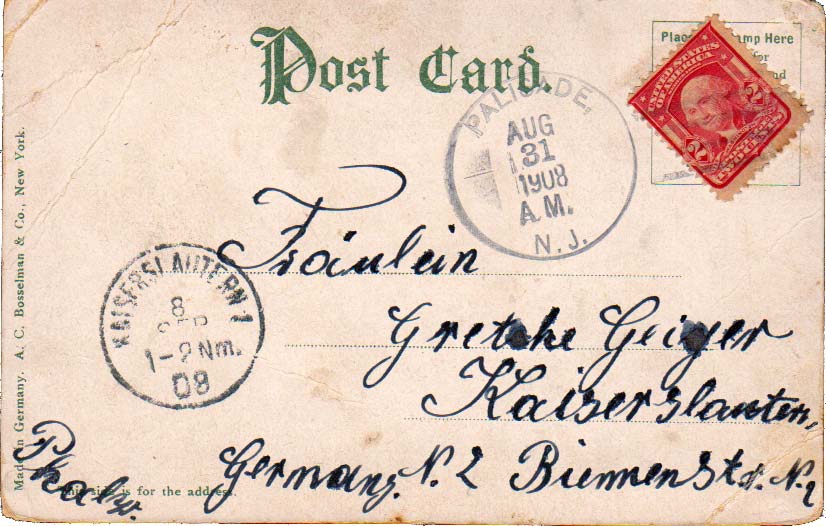 Post Card.
Place Stamp Here
for
and
UNITED STATES
OF AMERICA
2 2
PALISADE,
AUG
31
1908
A.M.
N.J.
KAISERSLAUTERN 1
8
SEP
1-2 Nm.
08
Fräulein
Gretche Geiger
Kaiserslautern,
Germany. N. 2 Str. N. 2
Made in Germany. A. C. Bosselman & Co., New York.
This side is for the address.